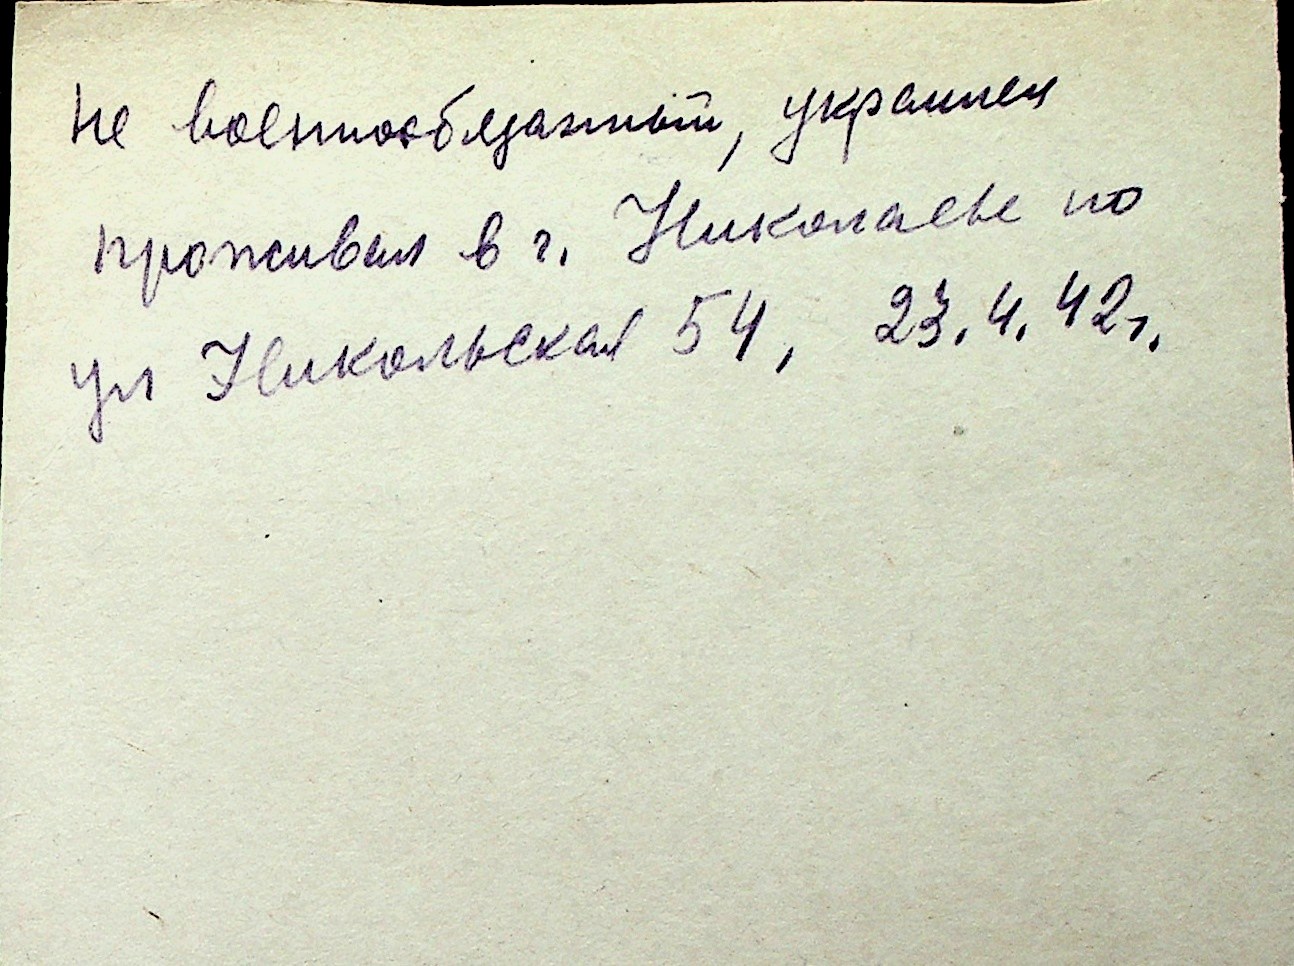 не военнообязанный, украинец
проживал в г. Николаеве по
ул Никольская 54, 23.4.42г.